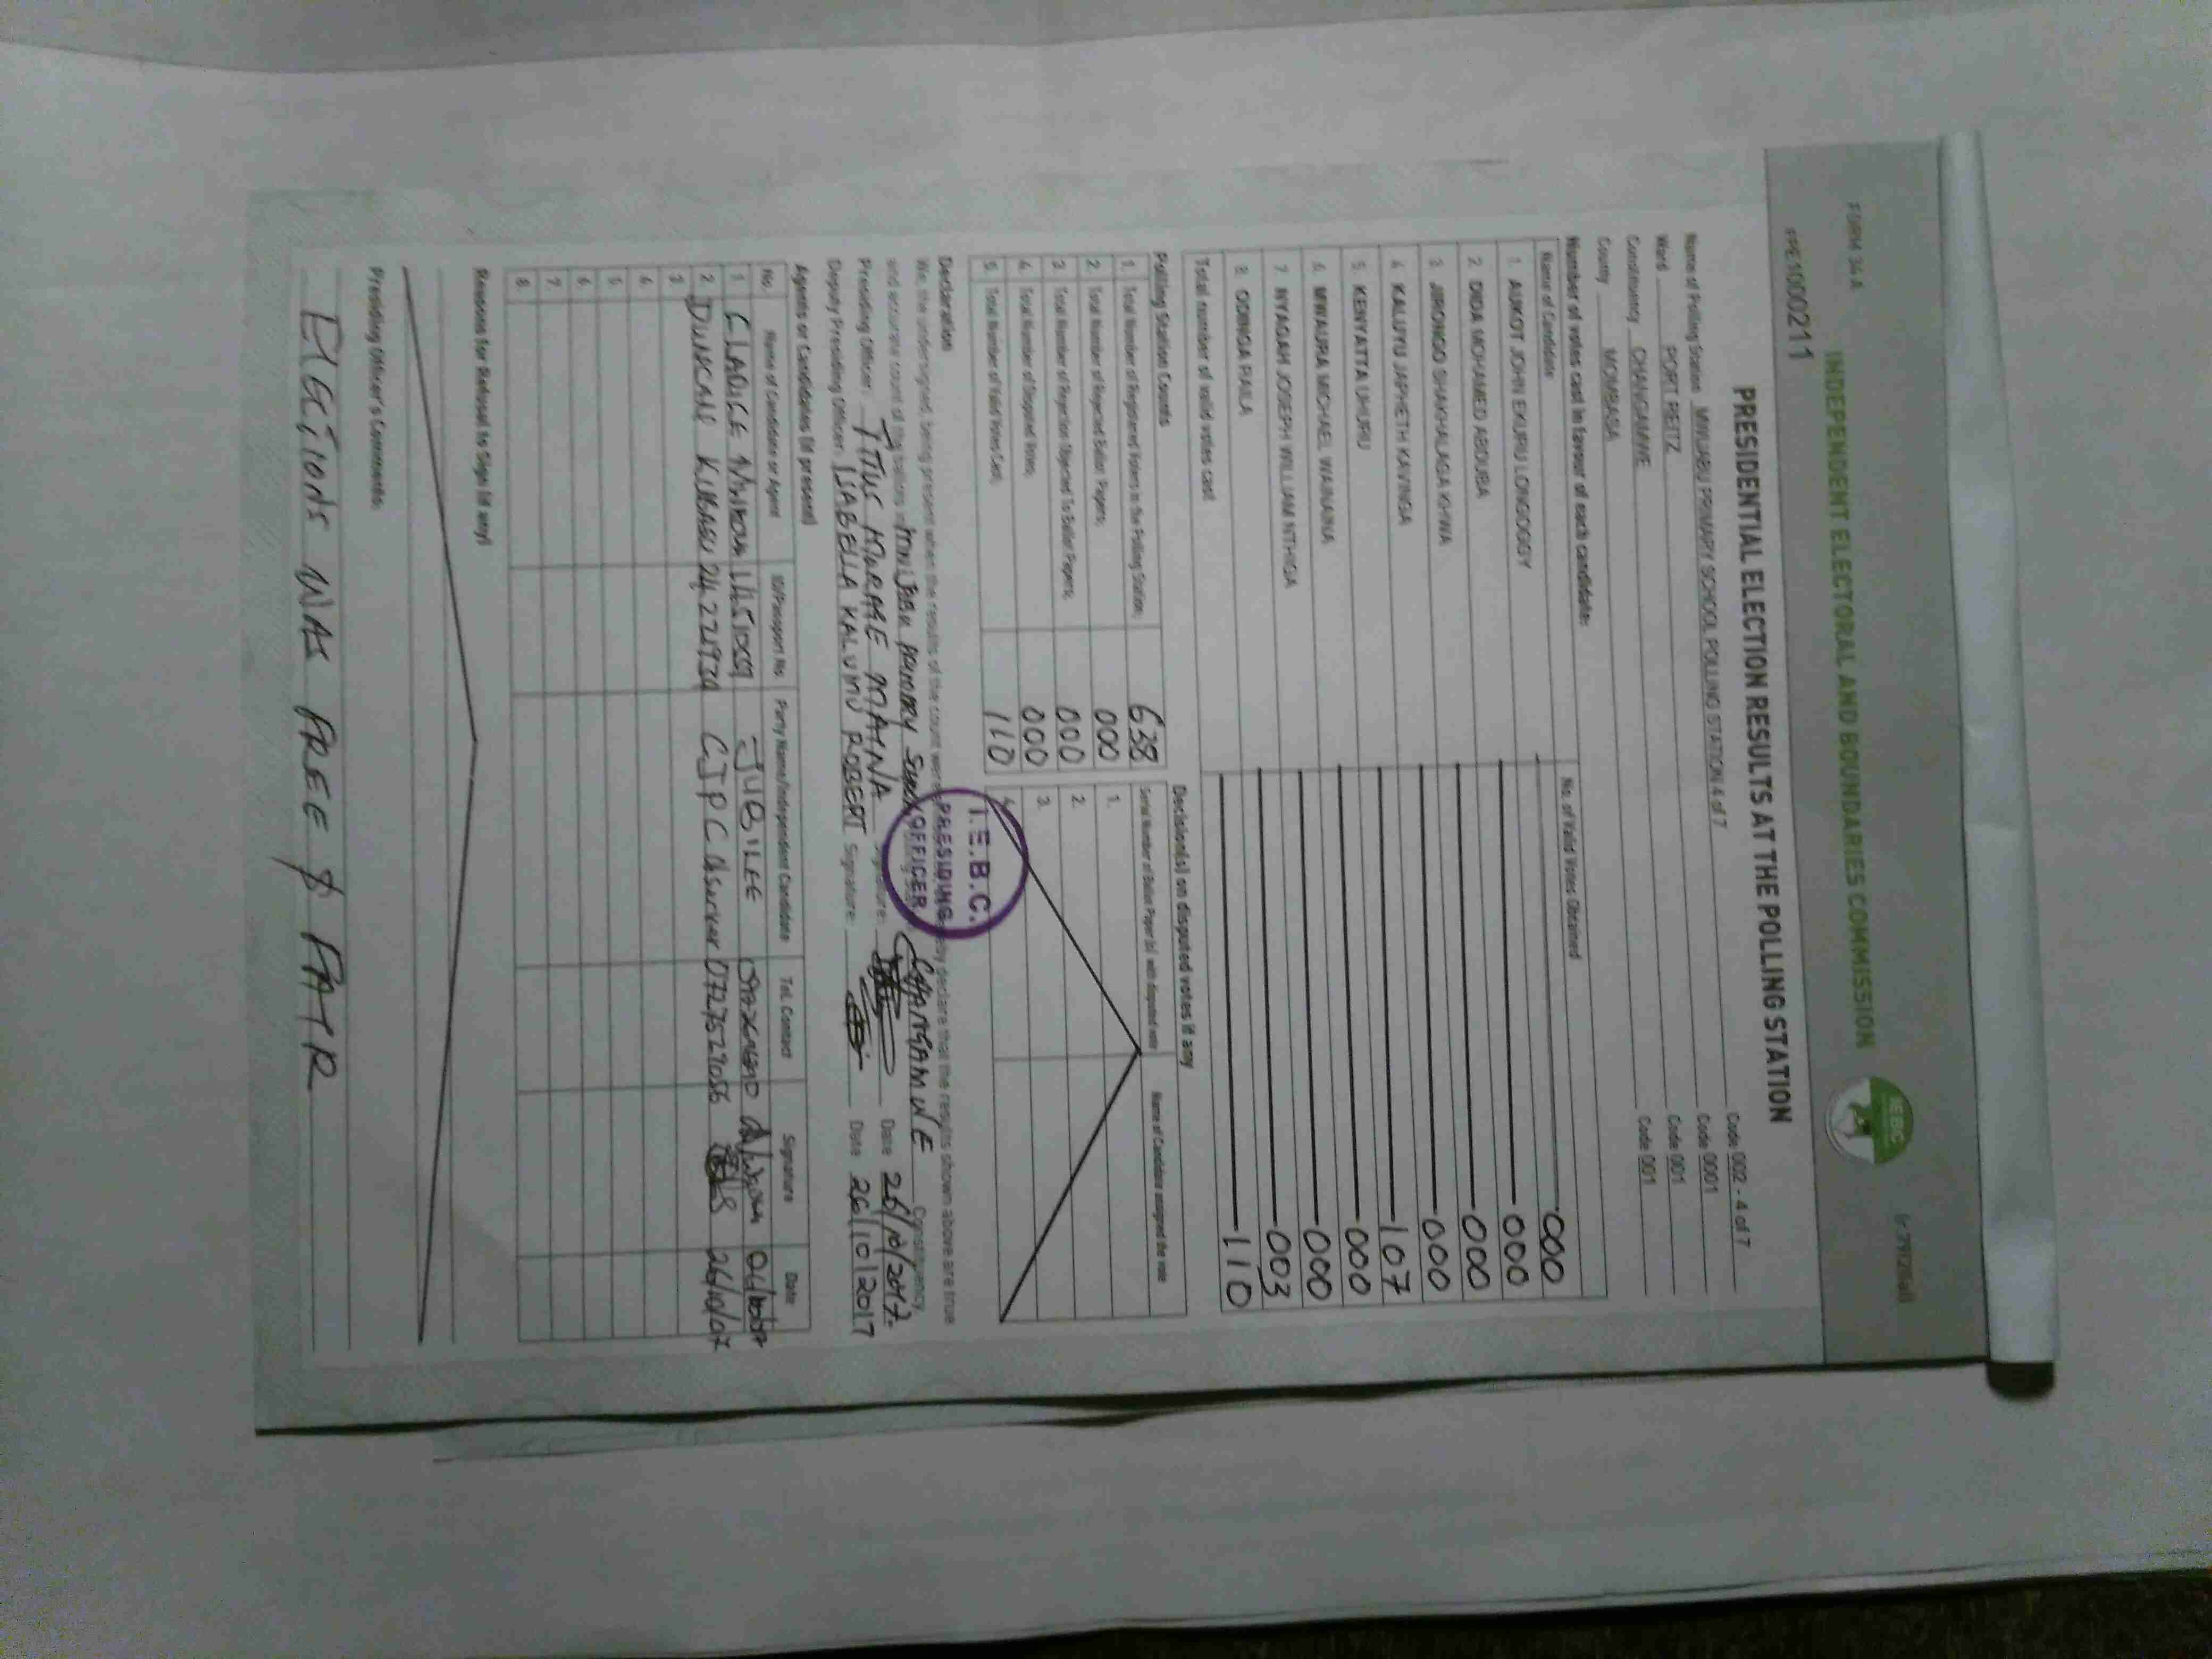 FORM 34A
INDEPENDENT ELECTORAL AND BOUNDARIES COMMISSION
IEBC
#PE1000211
PRESIDENTIAL ELECTION RESULTS AT THE POLLING STATION
Name of Polling Station MWIJABU PRIMARY SCHOOL POLLING STATION 4 of 7 Code 002 - 4 of 7
Ward PORT REITZ Code 0001
Constituency CHANGAMWE Code 001
County MOMBASA Code 001
Number of votes cast in favour of each candidate:
Name of Candidate No. of Valid Votes Obtained
1. AUKOT JOHN EKURU LONGOGGY 000
2. DIDA MOHAMED ABDUBA 000
3. JIRONGO SHAKHALAGA KHWA 000
4. KALUYU JAPHETH KAVINGA 000
5. KENYATTA UHURU 107
6. MWAURA MICHAEL WAINAINA 000
7. NYAGAH JOSEPH WILLIAM NTHIGA 000
8. ODINGA RAILA 003
Total number of valid votes cast 110
Polling Station Counts
1. Total Number of Registered Voters in the Polling Station; 638
2. Total Number of Rejected Ballot Papers; 000
3. Total Number of Rejection Objected To Ballot Papers; 000
4. Total Number of Disputed Votes; 000
5. Total Number of Valid Votes Cast; 110
Decision(s) on disputed votes if any
Serial Number of Ballot Paper (s) with disputed vote Name of Candidate assigned the vote
1.
2.
3.
4.
Declaration
We, the undersigned, being present when the results of the count were declare that the results shown above are true
and accurate count of the ballots in PRIMARY CHANGAMWE Constituency
I.E.B.C. PRESIDING OFFICER
Presiding Officer: TITUS MAINA Signature: Date 26/10/2017
Deputy Presiding Officer: ISABELLA KALUMU ROBERT Signature: Date 26/10/2017
Agents or Candidates (if present)
No. Name of Candidate or Agent ID/Passport No Party Name/Independent Candidate Tel. Contact Signature Date
1 JUBILEE
2 DUNCAN CJPC Observer 0727529056
3
4
5
6
7
8
Reasons for Refusal to Sign (if any)
Presiding Officer's Comments:
ELECTIONS WAS FREE & FAIR